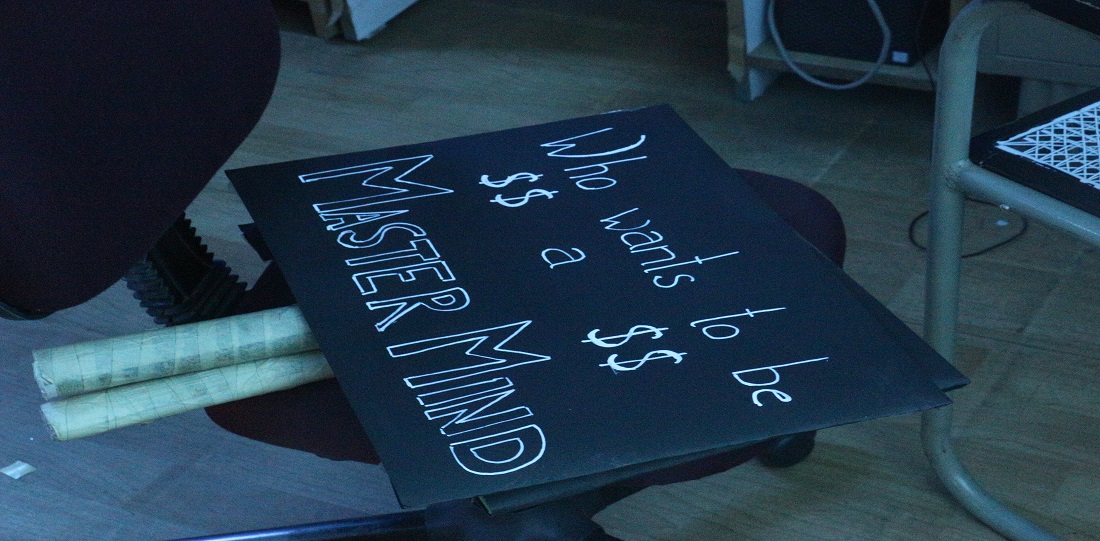 Who wants to be
$$ a $$
MASTER MIND